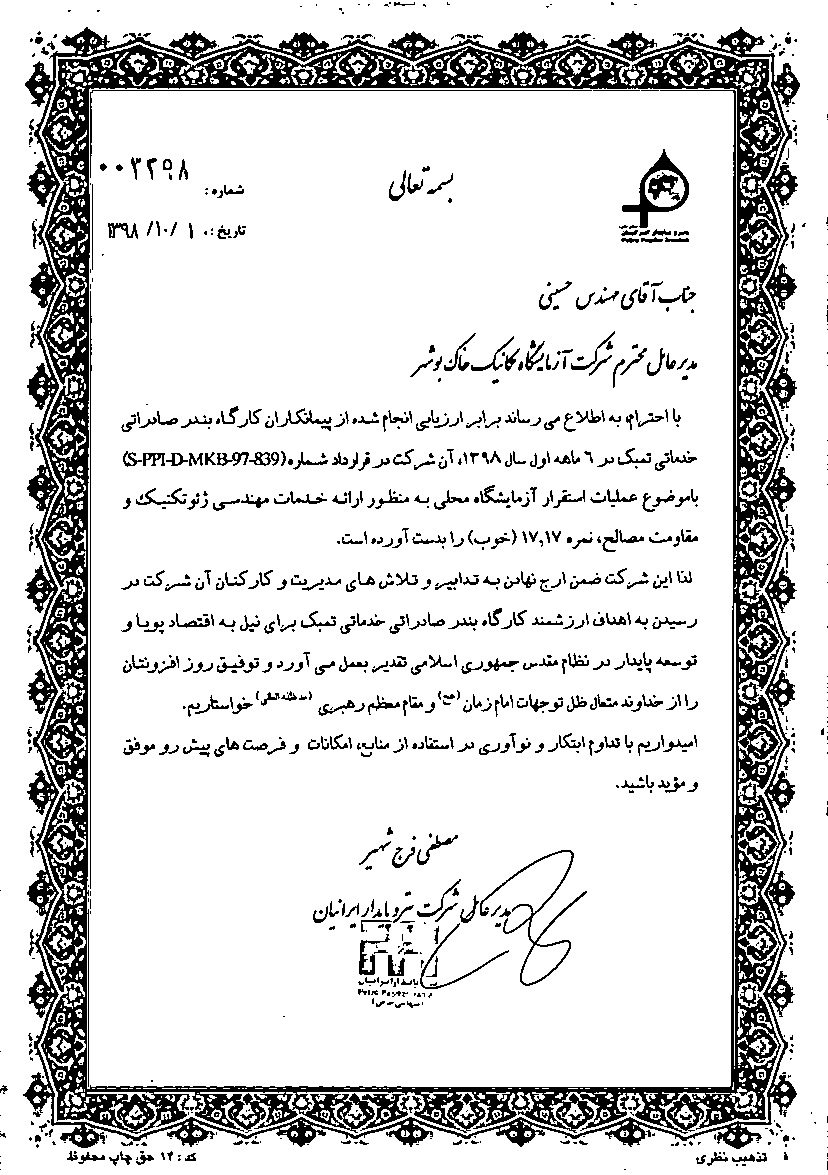 بسمه تعالی
شماره: ۰۰۳۲۹۸
تاریخ: ۱۳۹۸/۱۰/۰۱
Petro Paydar Iranian
جناب آقای مهندس حسینی
مدیرعامل محترم شرکت آزمایشگاه مکانیک خاک بوشهر
با احترام، به اطلاع می رساند برابر ارزیابی انجام شده از پیمانکاران کارگاه بندر صادراتی
خدماتی تمبک در ۶ ماهه اول سال ۱۳۹۸، آن شرکت در قرارداد شماره (S-PPI-D-MKB-97-839)
باموضوع عملیات استقرار آزمایشگاه محلی به منظور ارائه خدمات مهندسی ژئوتکنیک و
مقاومت مصالح، نمره ۱۷,۱۷ (خوب) را بدست آورده است.
لذا این شرکت ضمن ارج نهادن به تدابیر و تلاش های مدیریت و کارکنان آن شرکت در
رسیدن به اهداف ارزشمند کارگاه بندر صادراتی خدماتی تمبک برای نیل به اقتصاد پویا و
توسعه پایدار در نظام مقدس جمهوری اسلامی تقدیر بعمل می آورد و توفیق روز افزونتان
را از خداوند متعال ظل توجهات امام زمان (عج) و مقام معظم رهبری (مدظله العالی) خواستاریم.
امیدواریم با تداوم ابتکار و نوآوری در استفاده از منابع، امکانات و فرصت های پیش رو موفق
و مؤید باشید.
مصطفی فرج شهیر
مدیرعامل شرکت پترو پایدار ایرانیان
پایدار ایرانیان
(سهامی خاص)
تذهیب نظری
کد: ۱۴ حق چاپ محفوظ